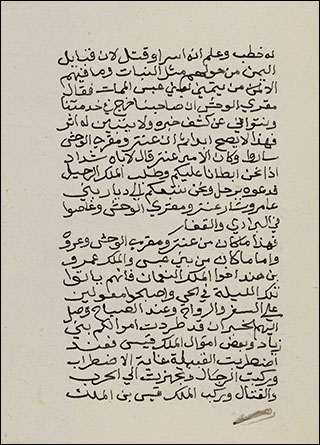 له خطب وعلم انه اسر او قتل لان قبايل
اليمن من حولهم مثل النبات وما فيهم
الا من يتمنى لبني عبس الممات فقال
مقري الوحش ان صاحبنا خرج في خدمتنا
ونتوانى عن كشف خبره ولا يتبين له اثر
فهذا لا يصح ابدا ثم ان عنتر ومقري الوحش
ساروا وكان الامير عنتر قال لاباه شداد
اذا نحن ابطانا عليكم وطلب الملك الرحيل
فدعوه يرحل ونحن نتبعكم الى ديار بني
عامر وسار عنتر ومقري الوحش وغاصوا
في البراري والقفار
فهذا ما كان من عنتر ومقري الوحش وعروه
واما ما كان من بني عبس والملك عمرو
بن هند اخو الملك النعمان فانهم باتوا
تلك الليلة في الحي واصبحوا معولين
على السفر والرواح وعند الصباح وصل
اليهم الخبر ان قد طردت اموالكم بني
زياد وبعض اموال الملك قيس فعند
اضطربت القبيلة غاية الاضطراب
وركبت الرجال وتجهزت الى الحرب
والقتال وركب الملك قيس بن الملك